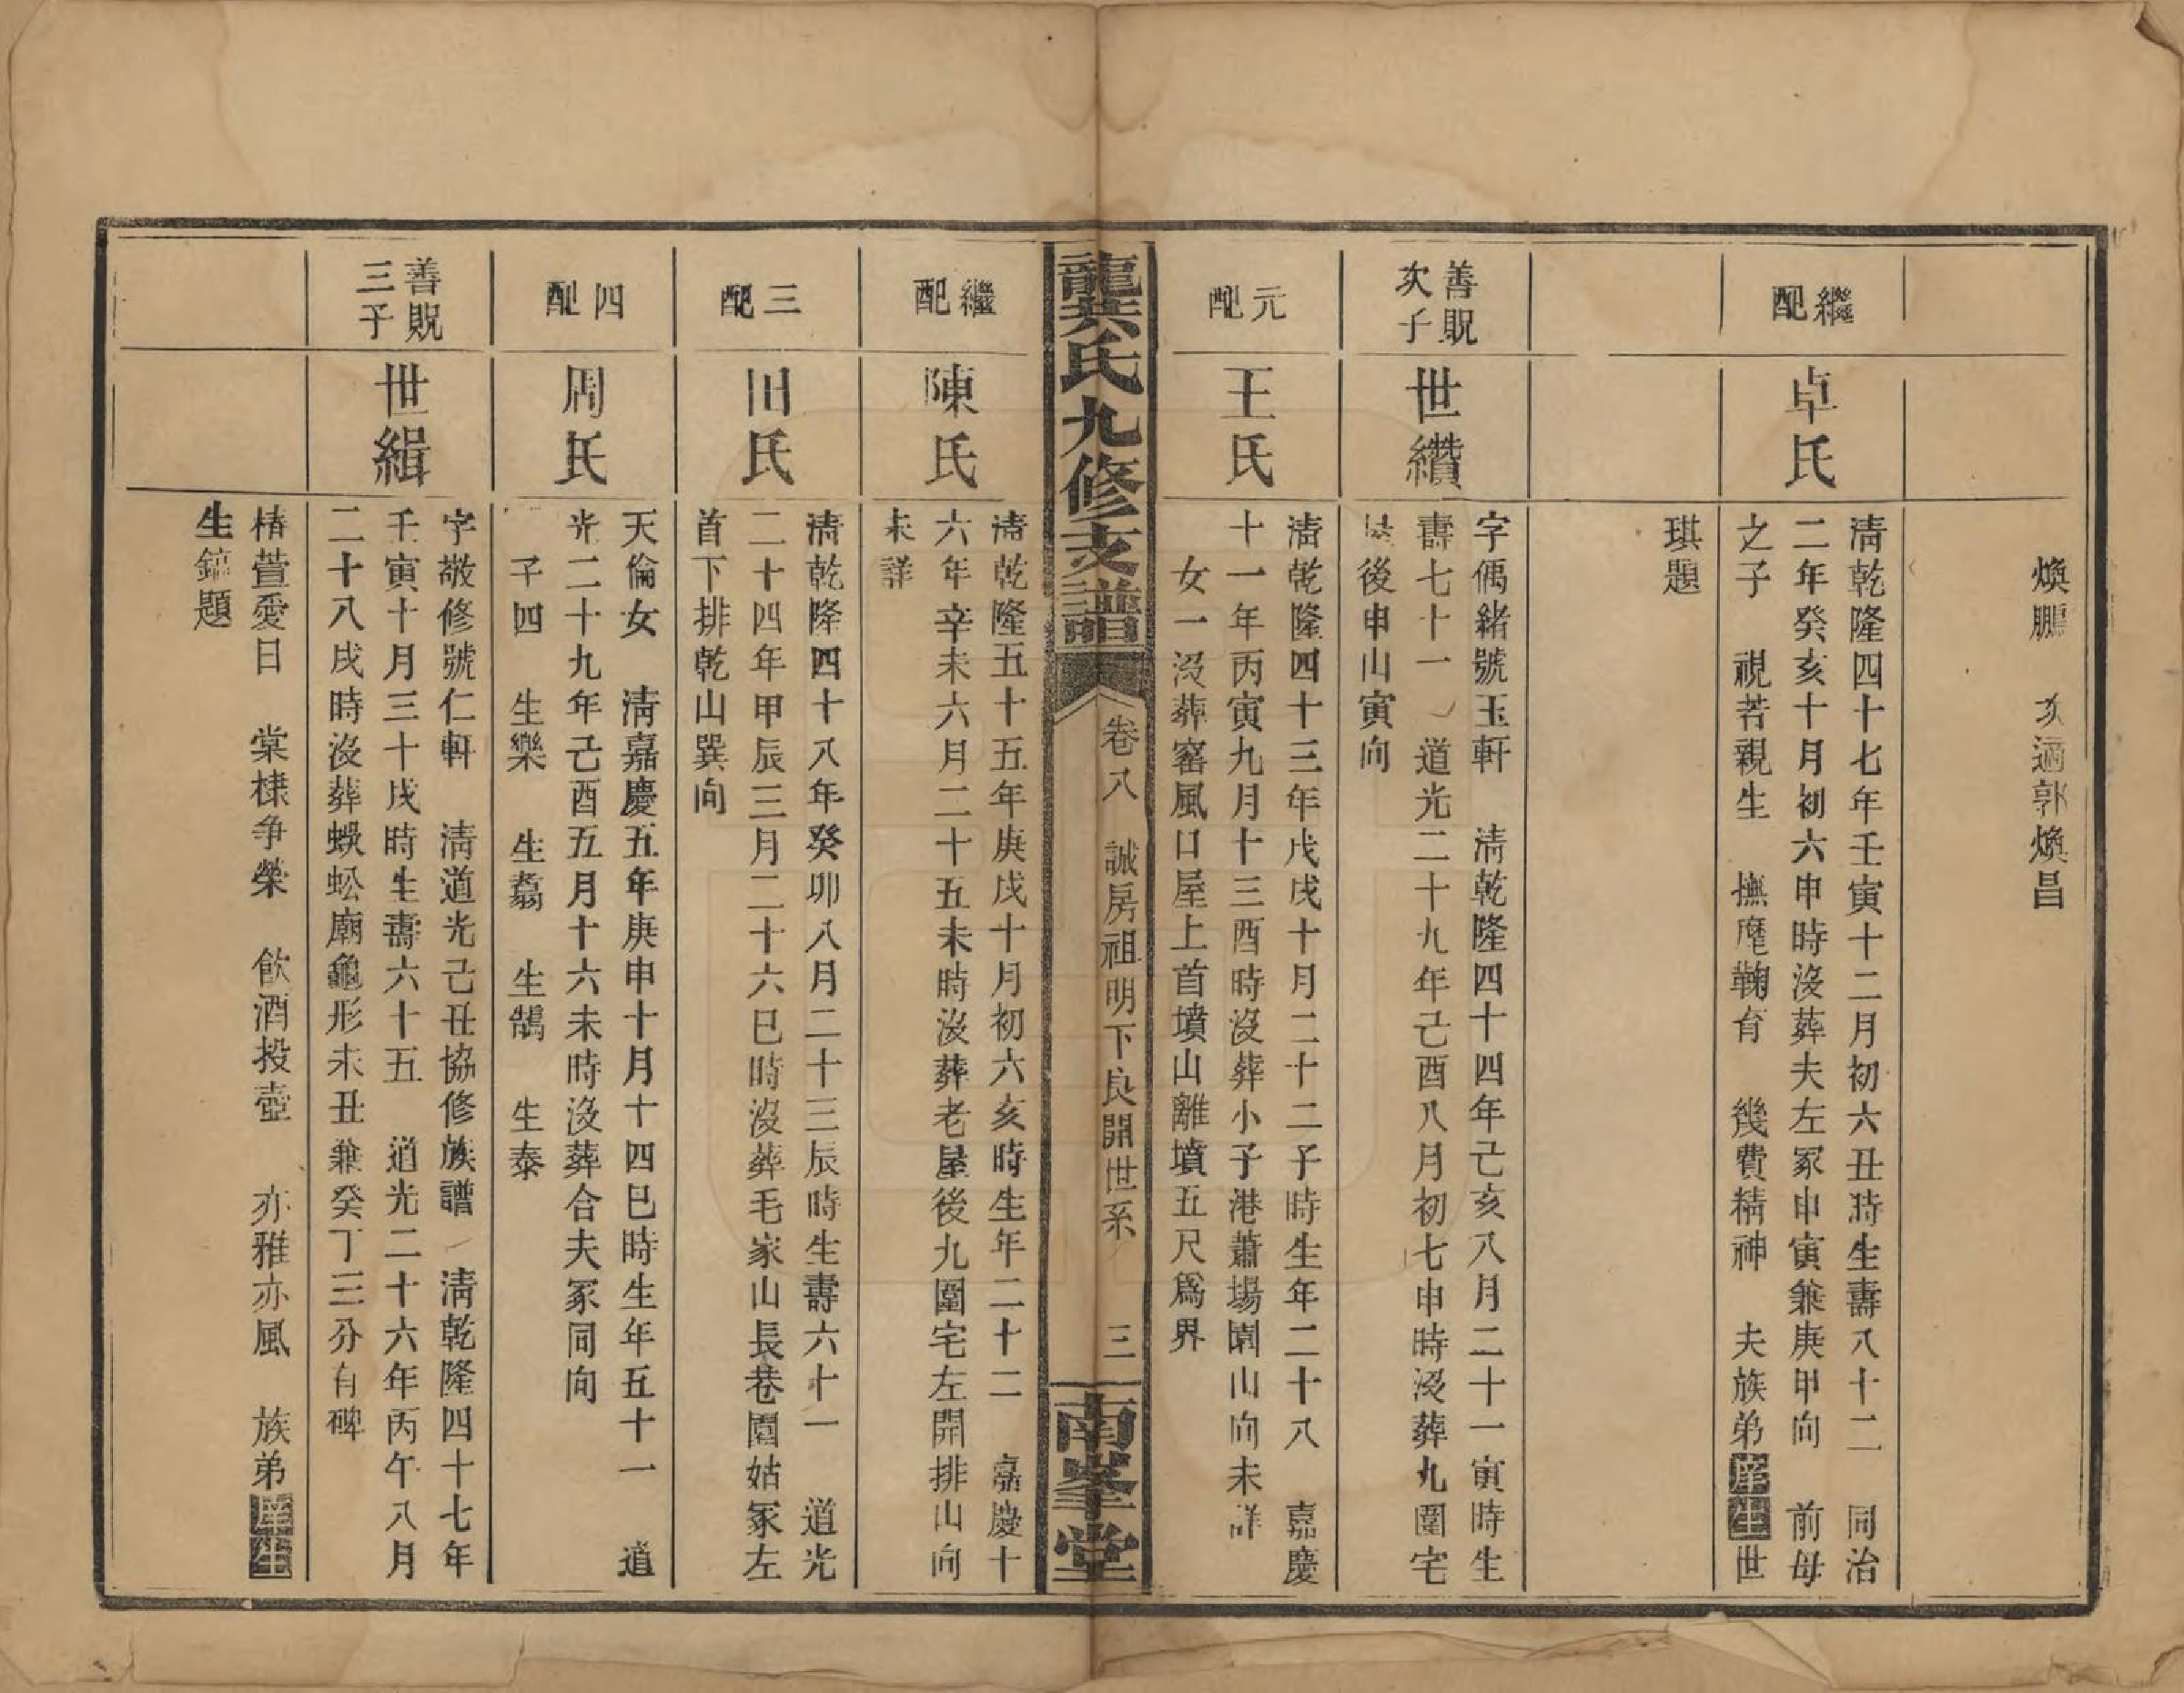 煥鵬　次適郭煥昌
繼配
卓氏
清乾隆四十七年壬寅十二月初六丑時生壽八十二　同治
二年癸亥十月初六申時沒葬夫左冢申寅兼庚甲向　前母
之子　視若親生　撫摩鞠育　幾費精神　夫族弟庠生世
琪題
善貺次子
世纘
字偶緒號玉軒　清乾隆四十四年己亥八月二十一寅時生
壽七十一　道光二十九年己酉八月初七申時沒葬九圍宅
後申山寅向
元配
王氏
清乾隆四十三年戊戌十月二十二子時生年二十八　嘉慶
十一年丙寅九月十三酉時沒葬小子港蕭場園山向未詳
女一沒葬窰風口屋上首墳山離墳五尺爲界
龍井氏九修支譜　卷八　誠房祖明下良開世系　三　南峯堂
繼配
陳氏
清乾隆五十五年庚戌十月初六亥時生年二十二　嘉慶十
六年辛未六月二十五未時沒葬老屋後九圍宅左開排山向
未詳
三配
田氏
清乾隆四十八年癸卯八月二十三辰時生壽六十一　道光
二十四年甲辰三月二十六巳時沒葬毛家山長巷園姑冢左
首下排乾山巽向
四配
周氏
天倫女　清嘉慶五年庚申十月十四巳時生年五十一　道
光二十九年己酉五月十六未時沒葬合夫冢同向
子四　生樂　生翥　生鵠　生泰
善貺三子
世緝
字敬修號仁軒　清道光己丑協修族譜　清乾隆四十七年
壬寅十月三十戌時生壽六十五　道光二十六年丙午八月
二十八戌時沒葬蜈蚣廟龜形未丑兼癸丁三分有碑
椿萱愛日　棠棣爭榮　飲酒投壺　亦雅亦風　族弟庠生
生鎬題